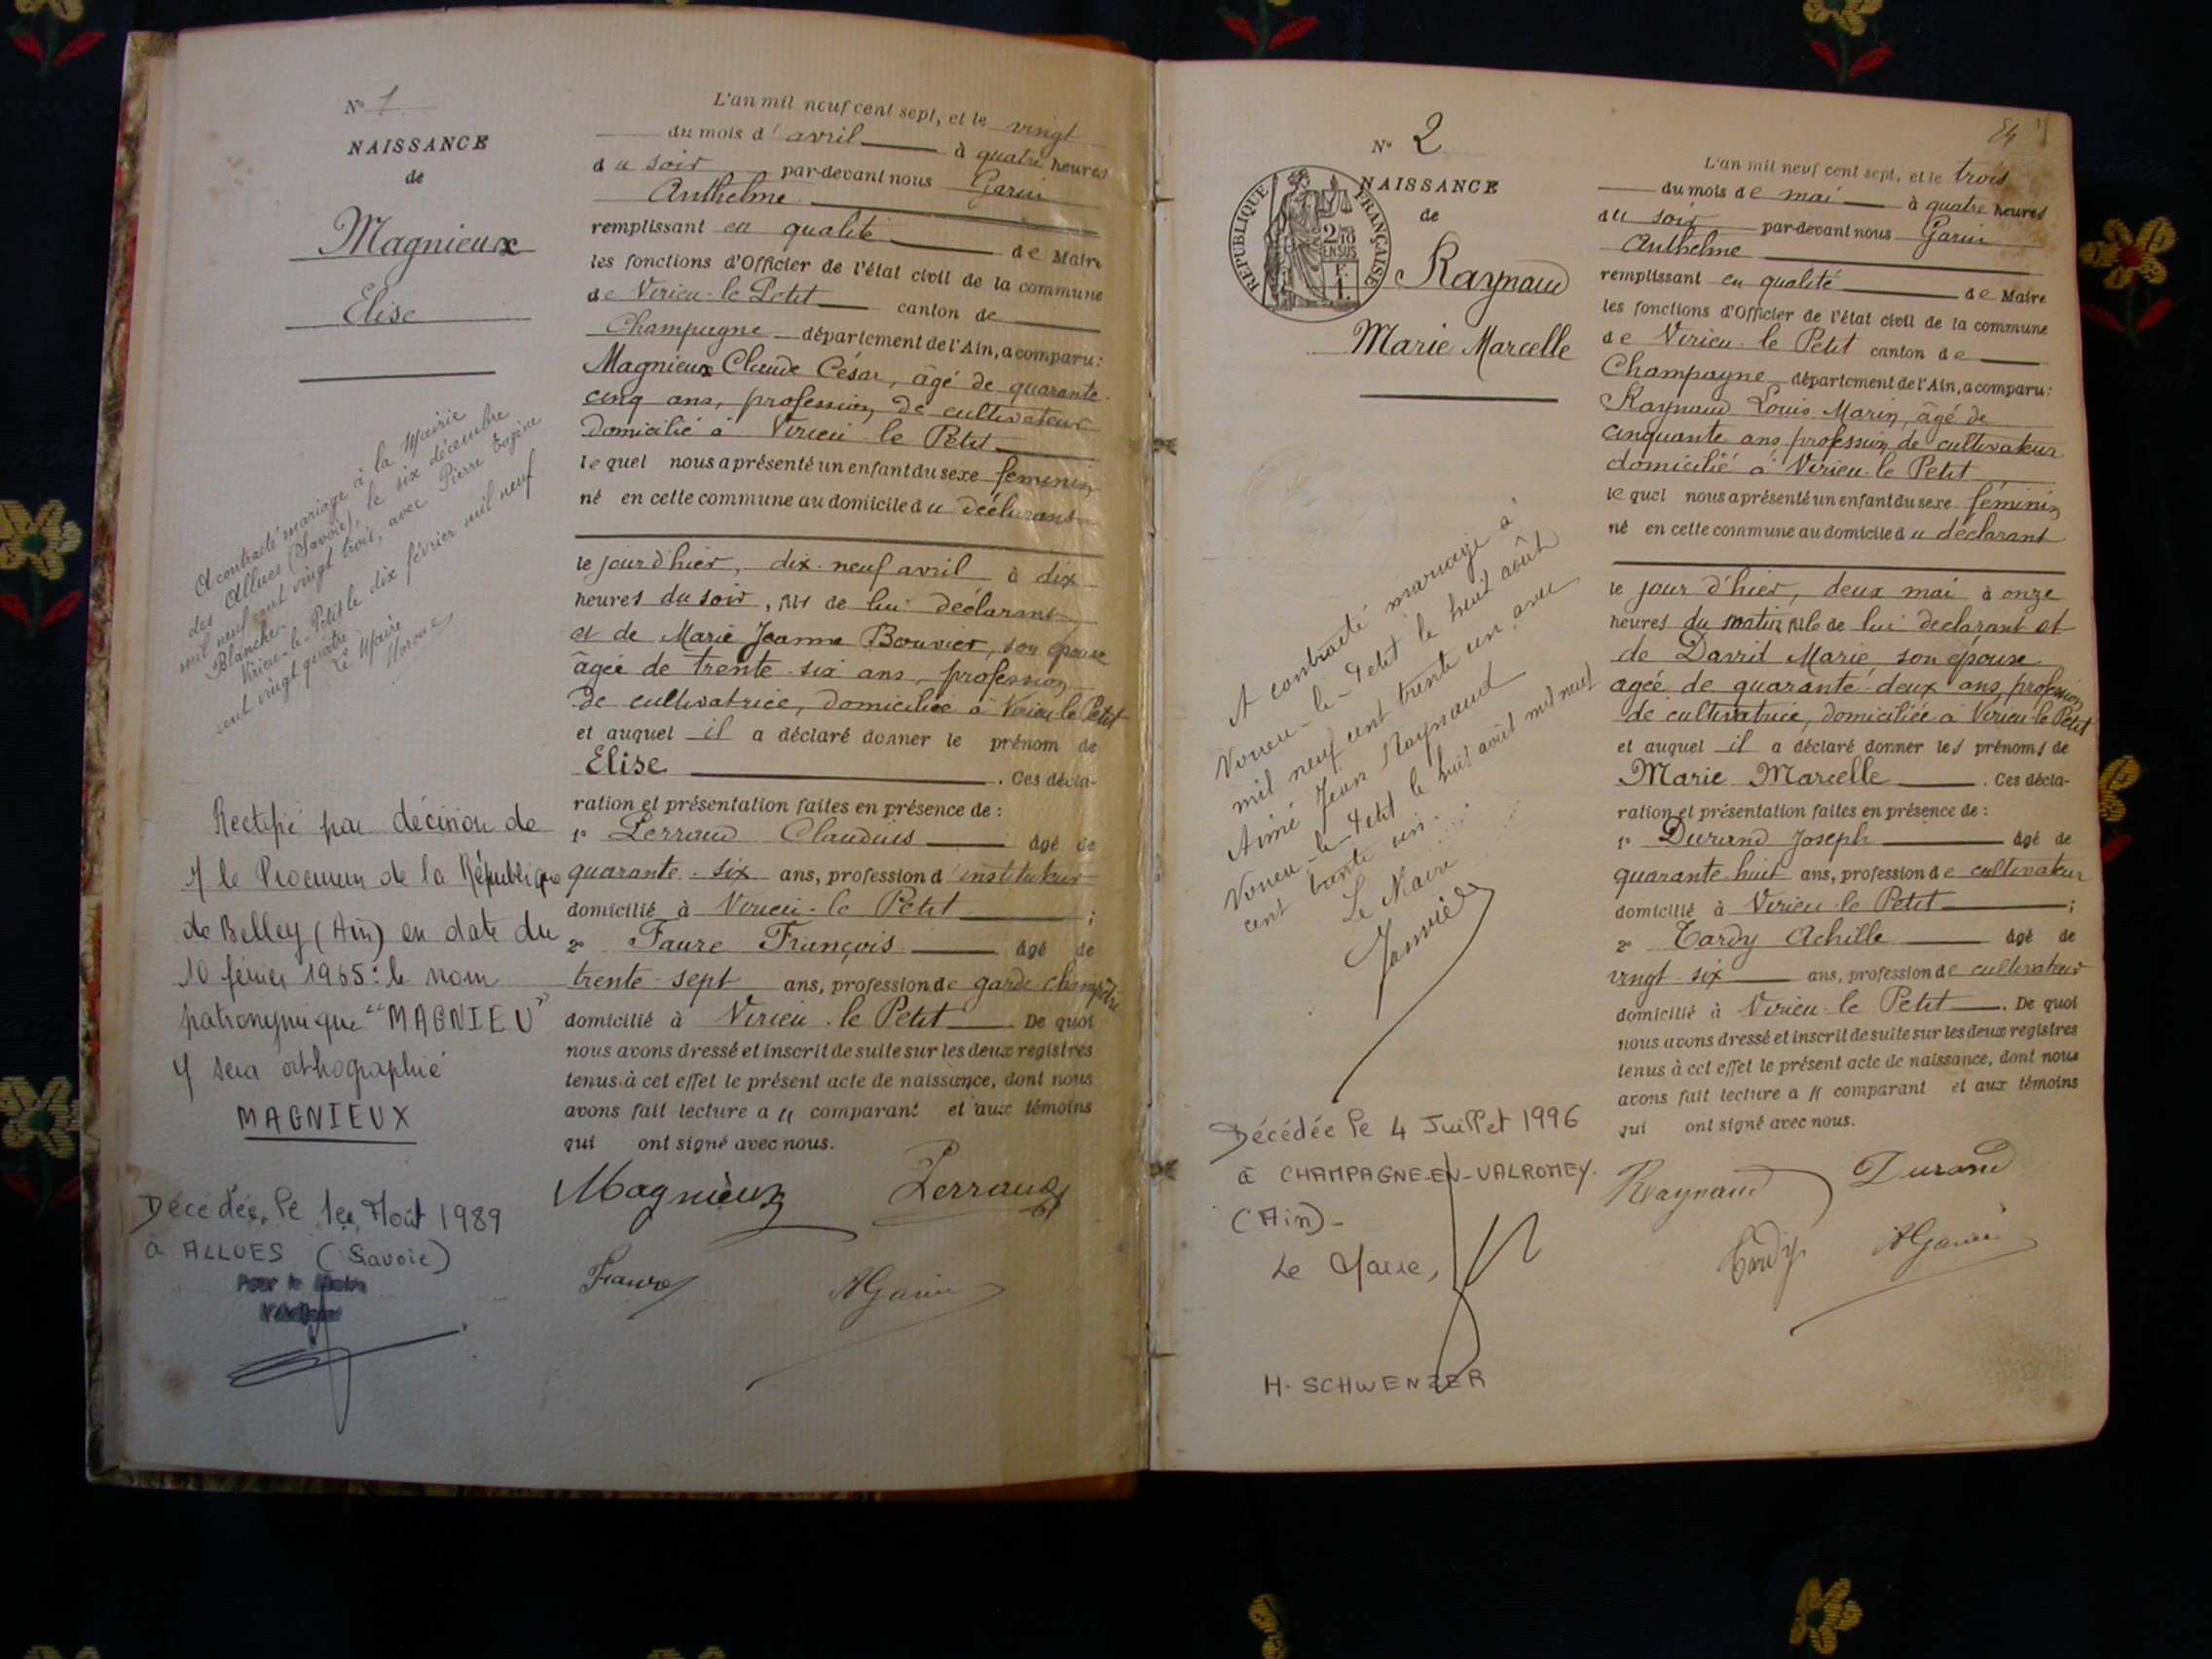 N° 1
NAISSANCE
de
Magnieux
Elise
A contracté mariage à la Mairie
des Allues (Savoie), le six décembre
mil neuf cent vingt trois, avec Pierre Eugène
Blanche.
Virieu-le-Petit le dix février mil neuf
cent vingt quatre
Le Maire
Rectifié par décision de
M le Procureur de la République
de Belley (Ain) en date du
10 février 1965 : le nom
patronymique "MAGNIEU"
y sera orthographié
MAGNIEUX
Décédée, le 1er Août 1989
à ALLUES (Savoie)
Pour le Maire
L'an mil neuf cent sept, et le vingt
du mois d'avril à quatre heures
du soir par-devant nous Garin
Anthelme
remplissant en qualité de Maire
les fonctions d'Officier de l'état civil de la commune
de Virieu-le Petit canton de
Champagne département de l'Ain, a comparu :
Magnieux Claude César, âgé de quarante-
cinq ans, profession de cultivateur
domicilié à Virieu le Petit
lequel nous a présenté un enfant du sexe féminin
né en cette commune au domicile du déclarant
le jour d'hier, dix-neuf avril à dix
heures du soir, né de lui déclarant
et de Marie Jeanne Bouvier, son épouse
âgée de trente-six ans, profession
de cultivatrice, domiciliée à Virieu le Petit
et auquel il a déclaré donner le prénom de
Elise . Ces décla-
ration et présentation faites en présence de :
1° Perraud Claudius âgé de
quarante-six ans, profession d'instituteur
domicilié à Virieu-le Petit ;
2° Faure François âgé de
trente-sept ans, profession de garde-champêtre
domicilié à Virieu-le Petit De quoi
nous avons dressé et inscrit de suite sur les deux registres
tenus à cet effet le présent acte de naissance, dont nous
avons fait lecture au comparant et aux témoins
qui ont signé avec nous.
Magnieux Perraud
Faure AGarin
N° 2
NAISSANCE
de
RÉPUBLIQUE FRANÇAISE
2/10
EN SUS
Raynaud
Marie Marcelle
A contracté mariage à
Virieu-le-Petit le huit août
mil neuf cent trente un avec
Aimé Jean Raynaud
Virieu-le-Petit le huit août mil neuf
cent trente un.
Le Maire
Décédée le 4 Juillet 1996
à CHAMPAGNE-EN-VALROMEY.
(Ain)-
Le Maire,
H. SCHWENZER
L'an mil neuf cent sept, et le trois
du mois de mai à quatre heures
du soir par-devant nous Garin
Anthelme
remplissant en qualité de Maire
les fonctions d'Officier de l'état civil de la commune
de Virieu-le Petit canton de
Champagne département de l'Ain, a comparu :
Raynaud Louis Marin, âgé de
cinquante ans profession de cultivateur
domicilié à Virieu-le Petit
lequel nous a présenté un enfant du sexe féminin
né en cette commune au domicile du déclarant
le jour d'hier, deux mai à onze
heures du matin née de lui déclarant et
de Davrit Marie, son épouse
agée de quarante-deux ans, profession
de cultivatrice, domiciliée à Virieu-le Petit
et auquel il a déclaré donner les prénoms de
Marie Marcelle . Ces décla-
ration et présentation faites en présence de :
1° Durand Joseph âgé de
quarante-huit ans, profession de cultivateur
domicilié à Virieu-le Petit ;
2° Tardy Achille âgé de
vingt-six ans, profession de cultivateur
domicilié à Virieu-le Petit . De quoi
nous avons dressé et inscrit de suite sur les deux registres
tenus à cet effet le présent acte de naissance, dont nous
avons fait lecture au comparant et aux témoins
qui ont signé avec nous.
Raynaud Durand
Tardy AGarin